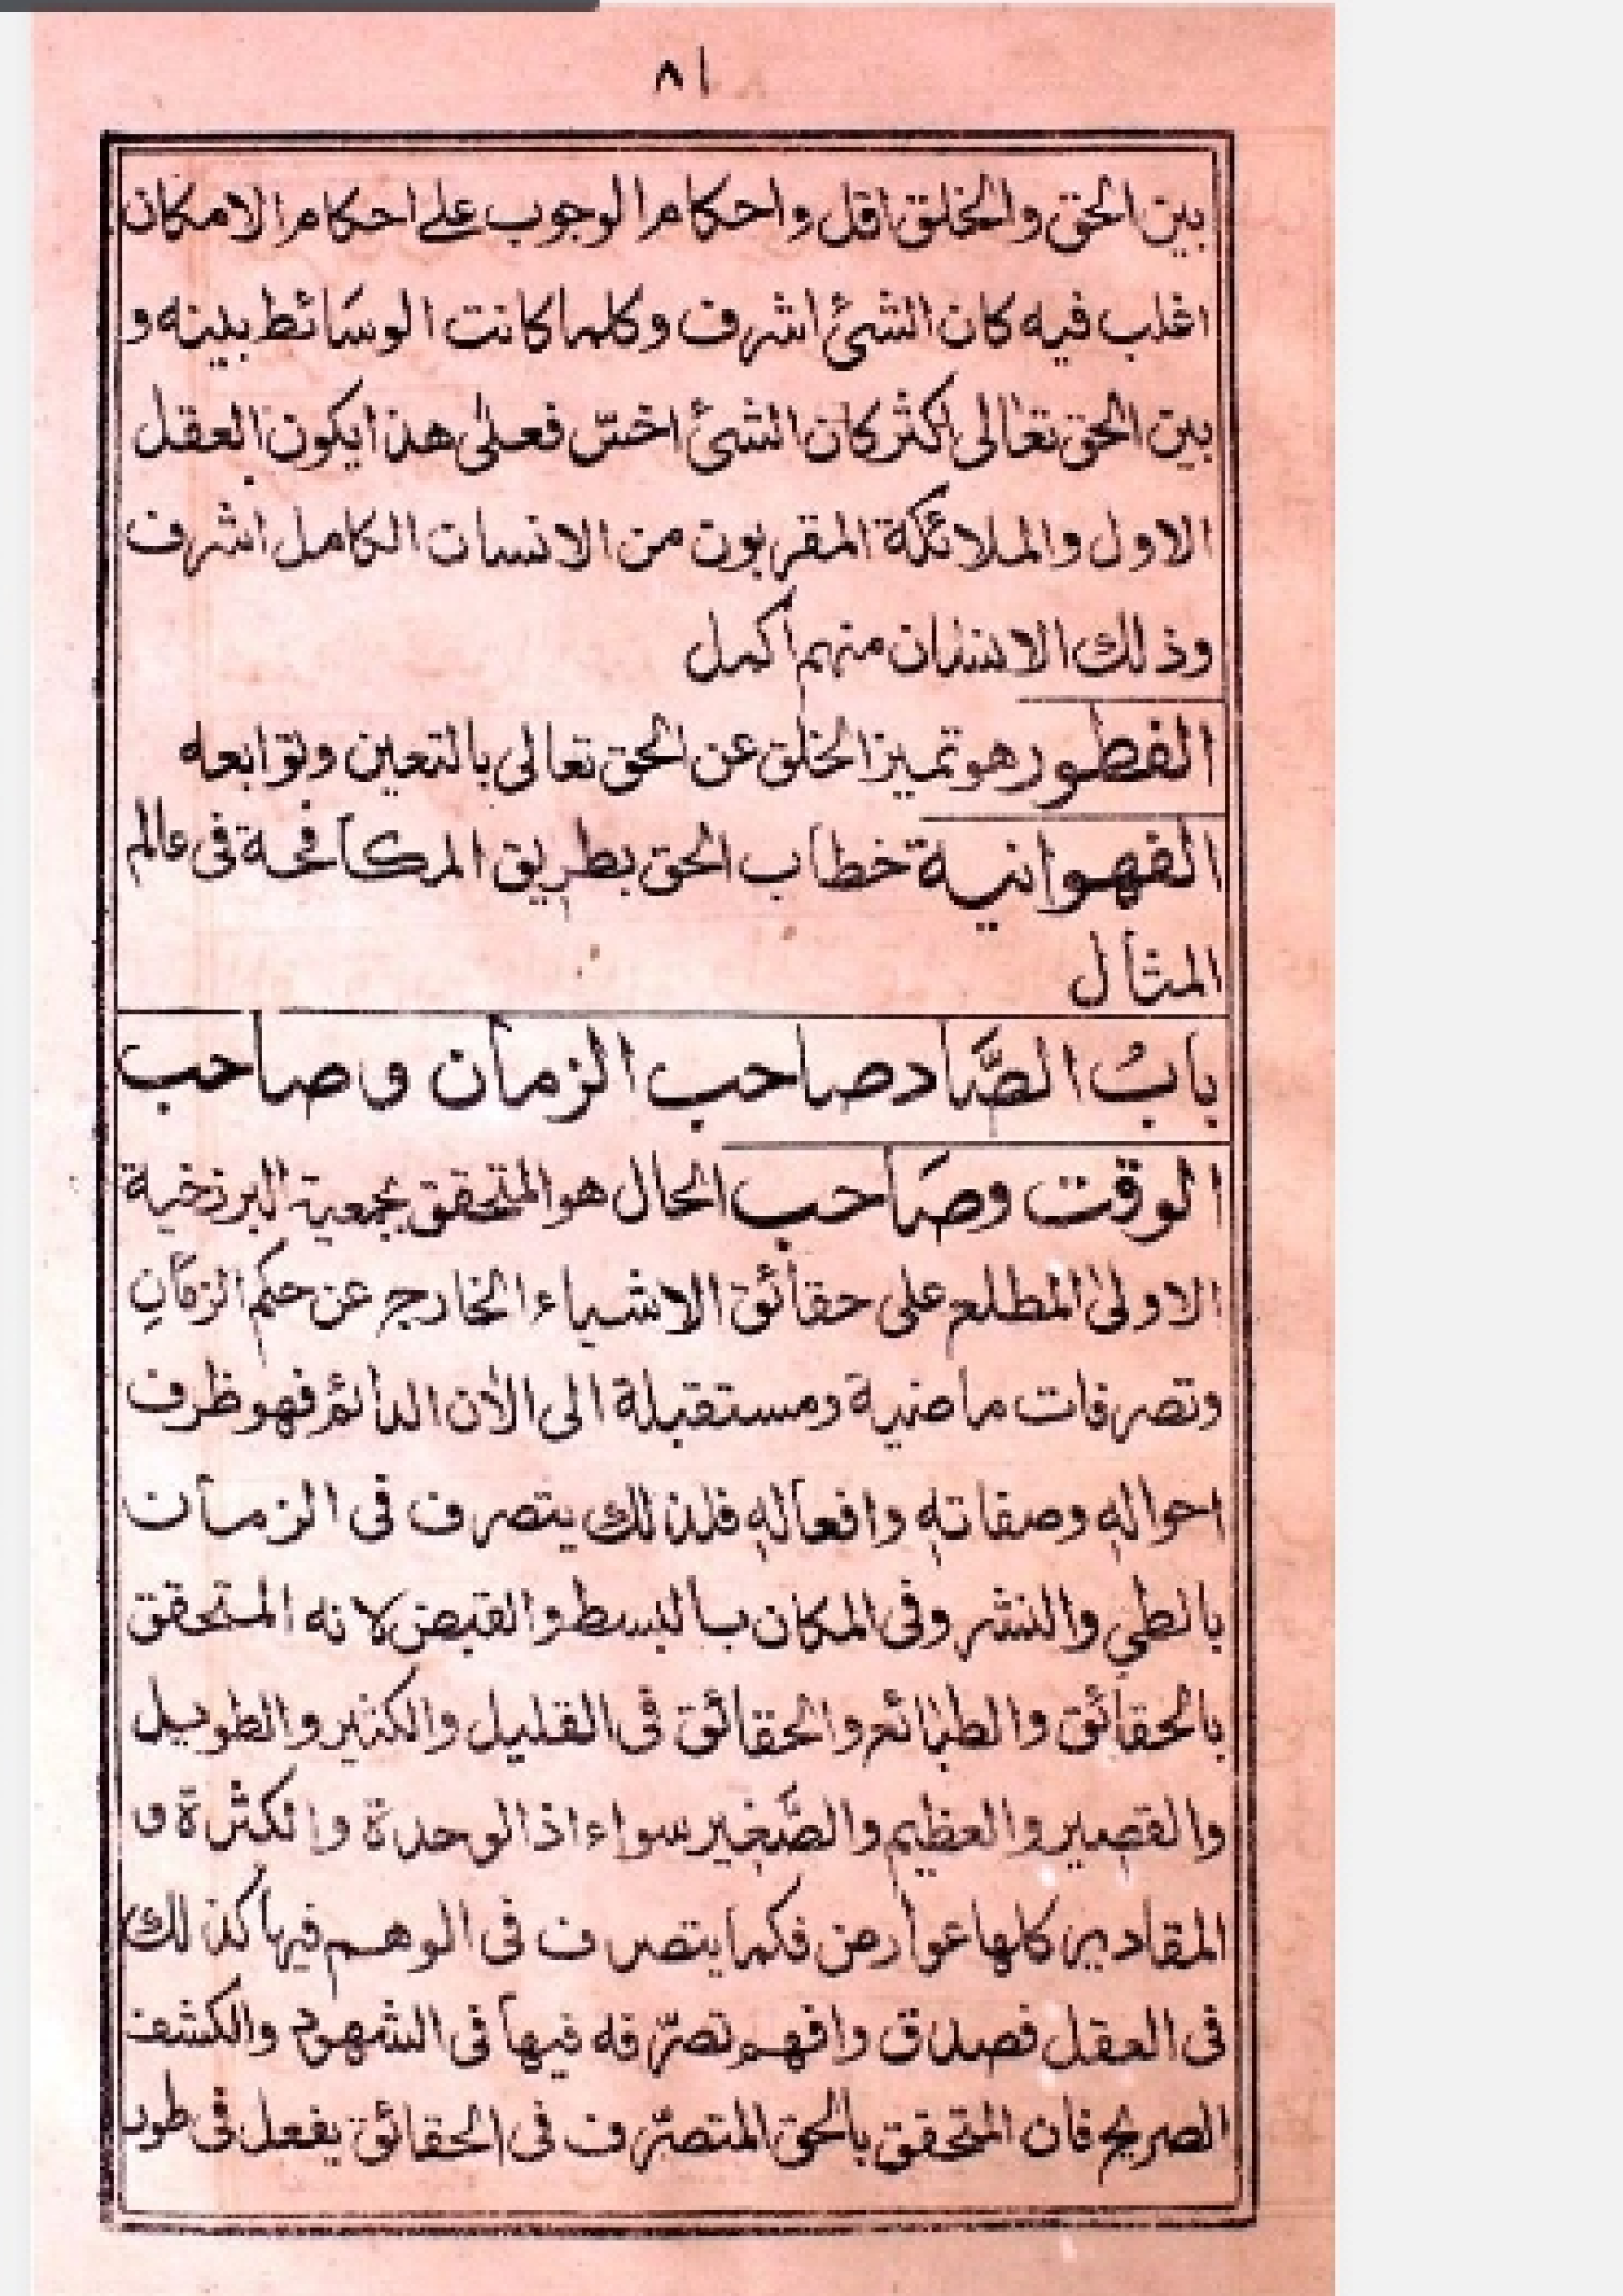 ٨١
بين الحق والخلق اقل واحكام الوجوب على احكام الامكان
اغلب فيه كان الشئ اشرف وكلما كانت الوسائط بينه و
بين الحق تعالى اكثر كان الشئ اخسّ فعلى هذا يكون العقل
الاول والملائكة المقربون من الانسان الكامل اشرف
وذلك الانسان منهم اكمل
الفطور هو تميز الخلق عن الحق تعالى بالتعين وتوابعه
الفهوانية خطاب الحق بطريق المكافحة فى عالم
المثال
بابُ الصَّاد صاحب الزمان و صاحب
الوقت وصَاحب الحال هو المتحقق بجمعية البرزخية
الاولىٰ المطلع على حقائق الاشياء الخارج عن حكم الزمانِ
وتصرفات ماضية ومستقبلة الى الآن الدائم فهو ظرف
احوالهِ وصفاتهِ وافعالهِ فلذلك يتصرف فى الزمان
بالطي والنشر وفى المكان بالبسط والقبض لانه المتحقق
بالحقائق والطبائع والحقائق فى القليل والكثير والطويل
والقصير والعظيم والصَّغير سواء اذ الوحدة والكثرة و
المقادير كلها عوارض فكما يتصرف فى الوهم فيها كذلك
فى العقل فصدق وافهم تصرّفه فيها فى الشهود والكشف
الصريح فان المتحقق بالحق المتصرّف فى الحقائق يفعل فى طور